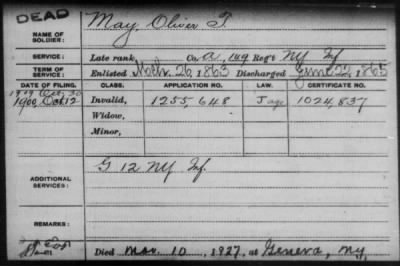 DEAD
NAME OF SOLDIER: May, Oliver T.
SERVICE: Late rank, Co. A, 149 Reg't NY Inf
TERM OF SERVICE: Enlisted Mch. 26, 1863 Discharged June 22, 1865
DATE OF FILING. CLASS. APPLICATION NO. LAW. CERTIFICATE NO.
1900 Oct 12 Invalid, 1255,648 J age 1024,837
Widow,
Minor,
ADDITIONAL SERVICES: G 12 NY Inf.
REMARKS:
Died Mar. 10, 1927, at Geneva, NY.